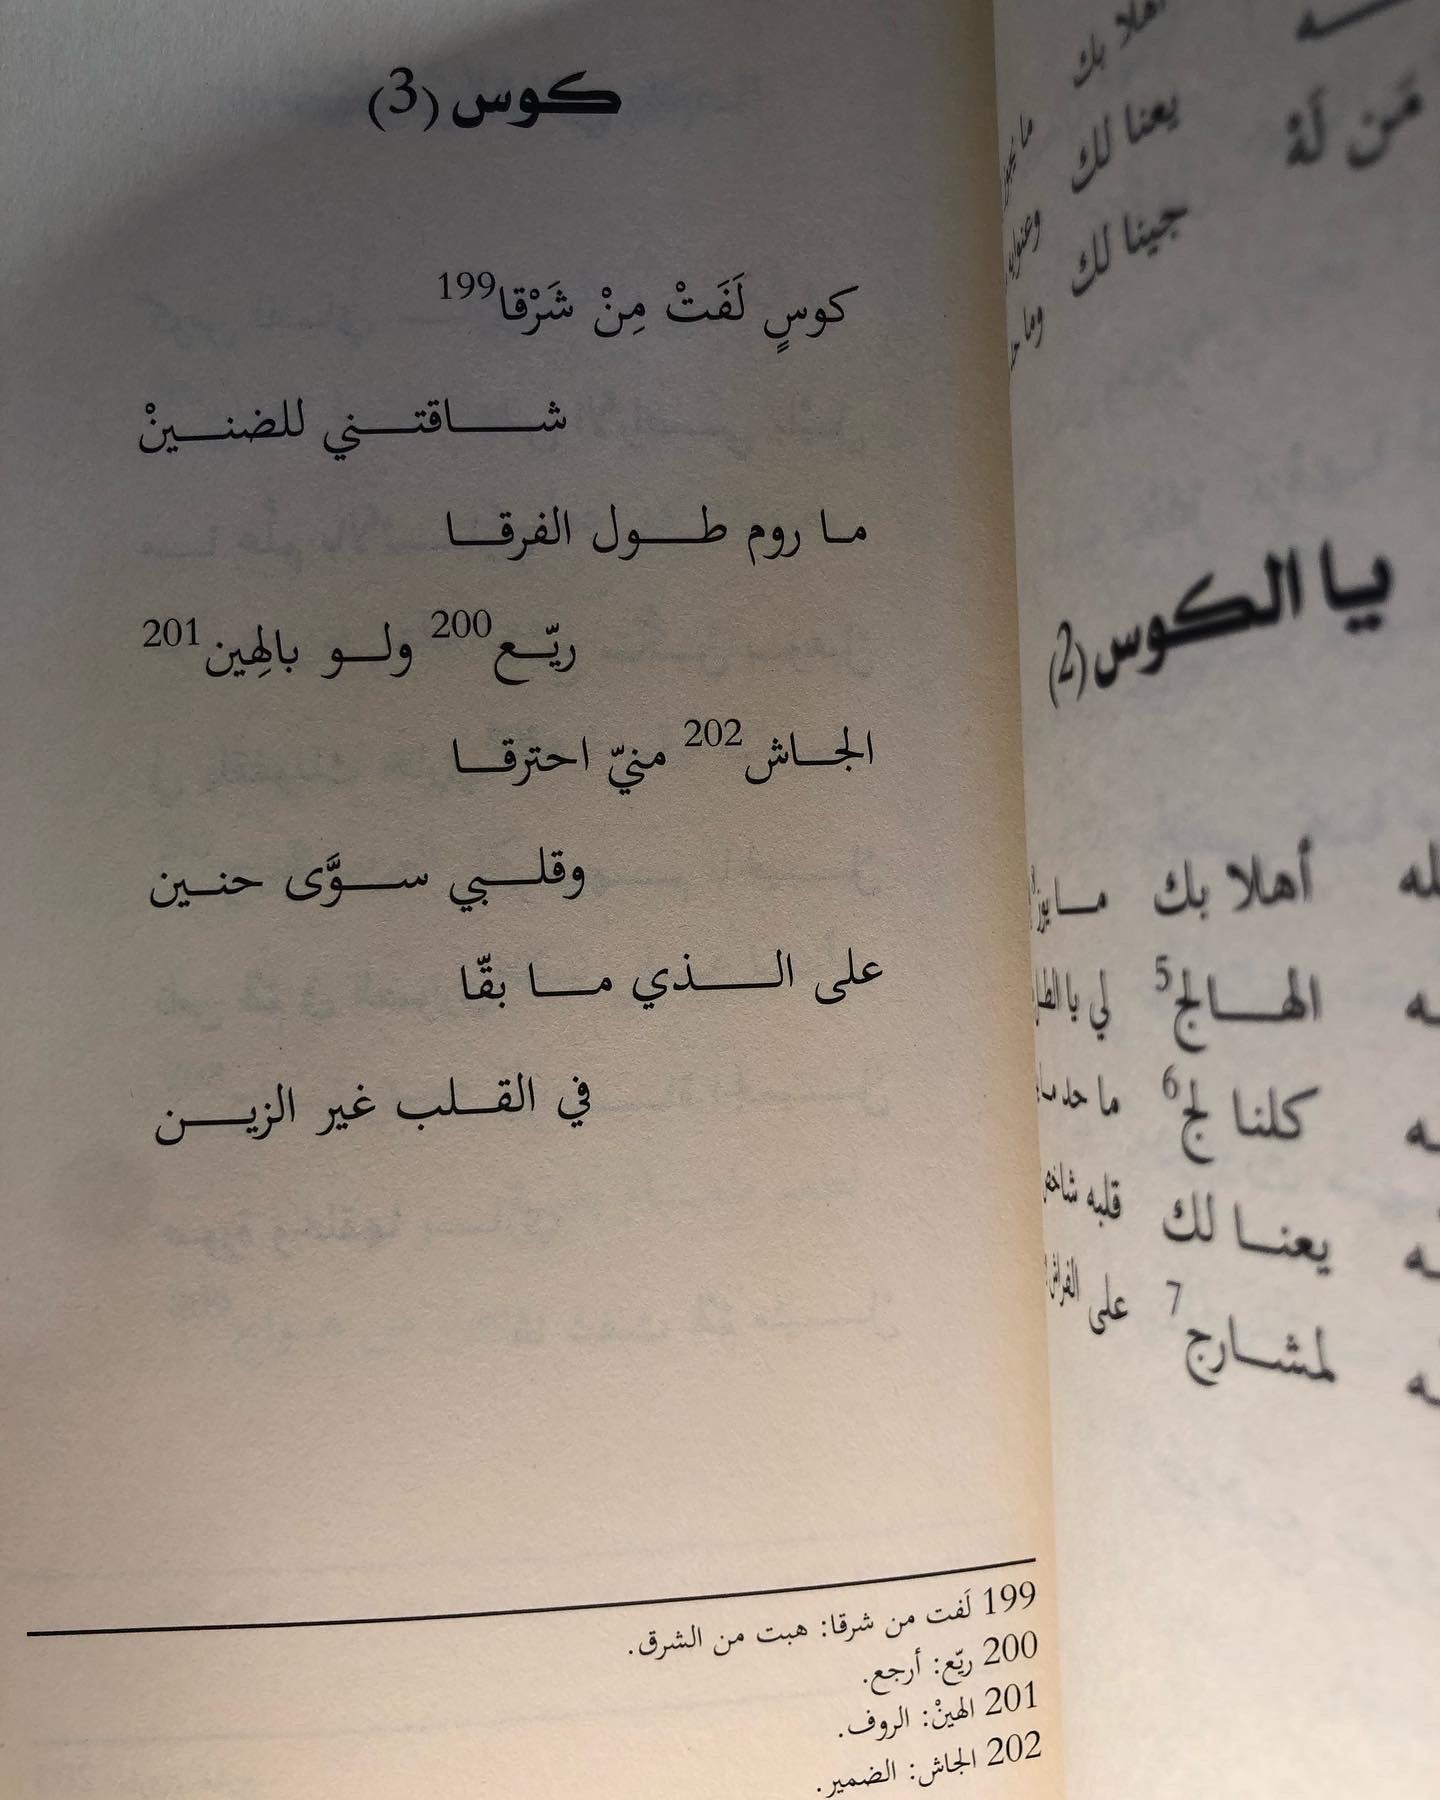 كوس (3)
كوسٍ لَفَتْ مِنْ شَرْقا199
شاقتني للضنينْ
ما روم طول الفرقا
ريّع200 ولو بالهِين201
الجاش202 منيّ احترقا
وقلبي سوَّى حنين
على الذي ما بقّا
في القلب غير الزين
199 لَفت من شرقا: هبت من الشرق.
200 ريّع: أرجع.
201 الهينْ: الروف.
202 الجاش: الضمير.
أهلا بك
مَن لَهْ يعنا لك
جينا لك
يا الكوس (2)
أهلا بك
الهالج5 لي با
كلنا لج6 ما حد
يعنا لك قلبه
لمشارج7 على